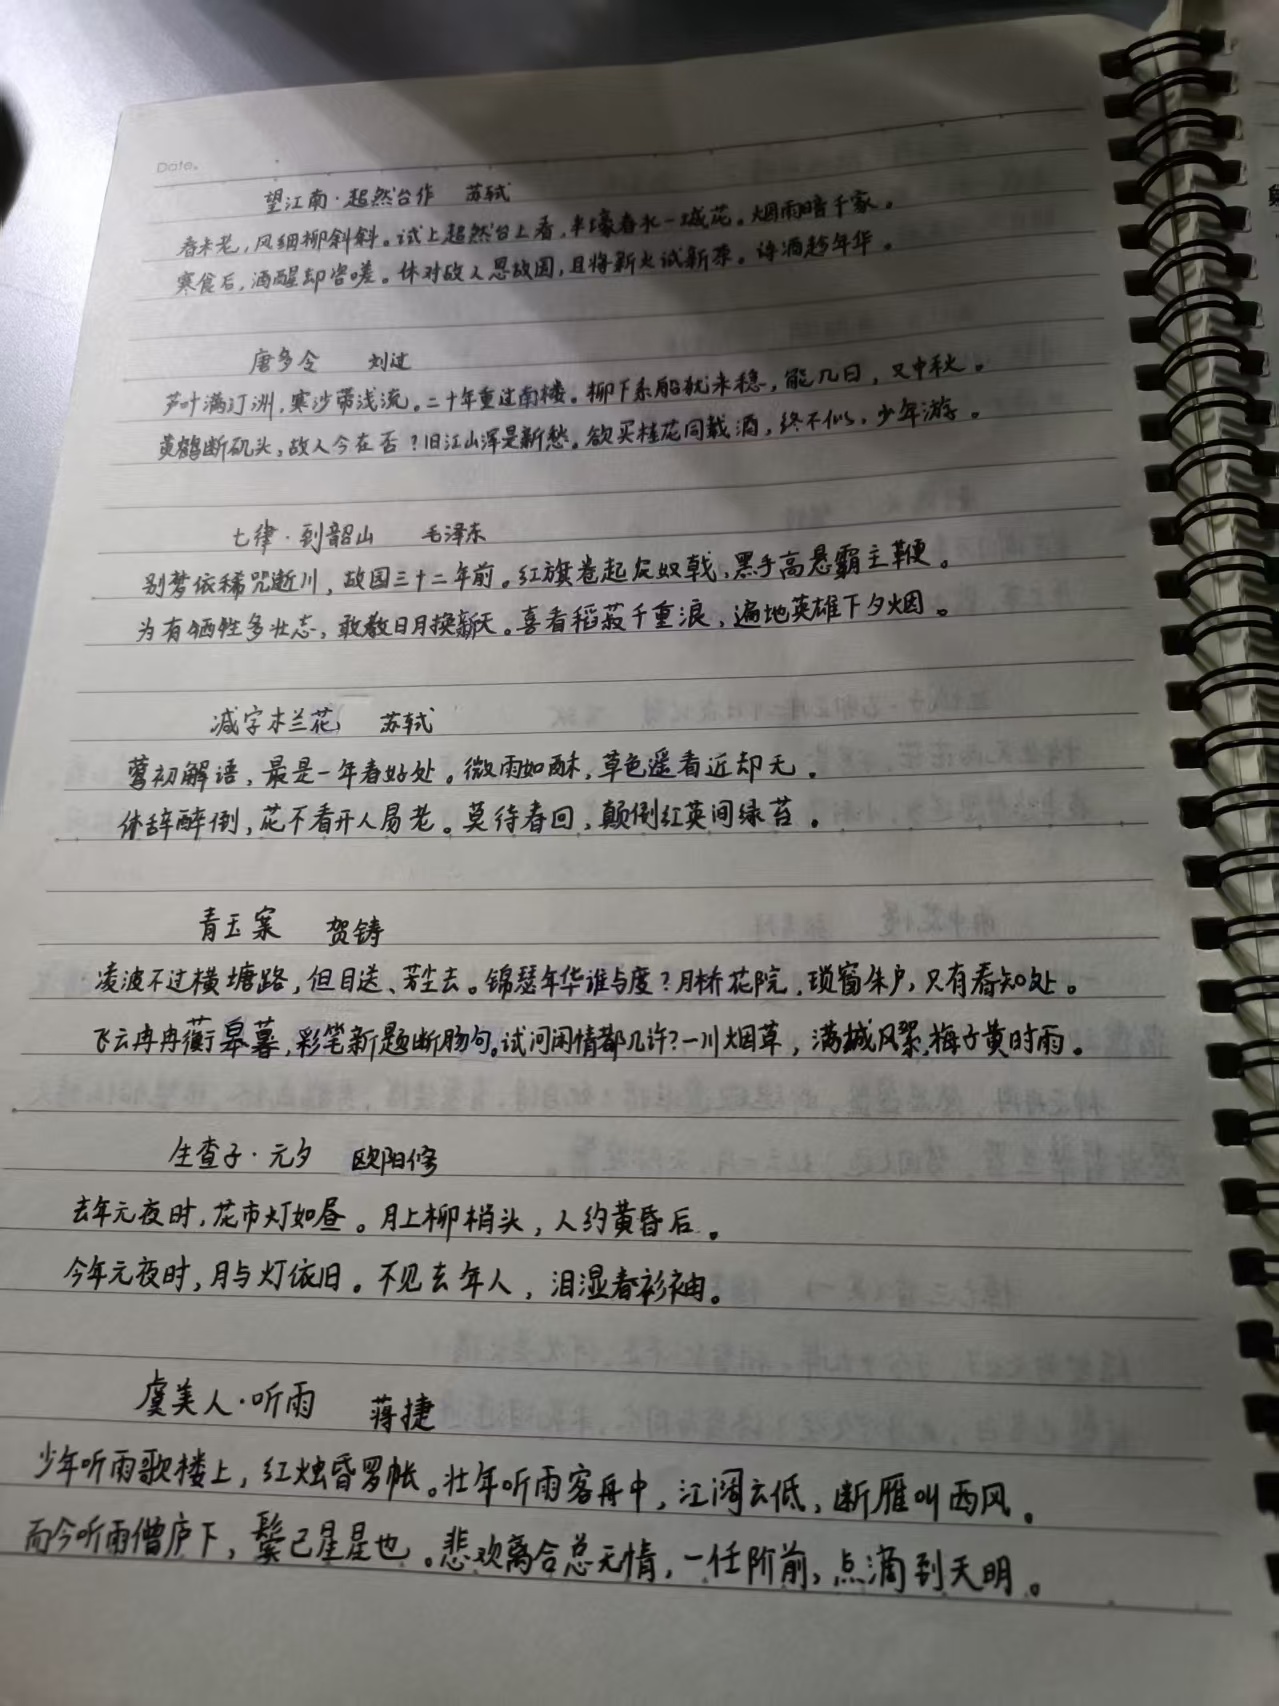 Date.
望江南·超然台作 苏轼
春未老，风细柳斜斜。试上超然台上看，半壕春水一城花。烟雨暗千家。
寒食后，酒醒却咨嗟。休对故人思故国，且将新火试新茶。诗酒趁年华。
唐多令 刘过
芦叶满汀洲，寒沙带浅流。二十年重过南楼。柳下系船犹未稳，能几日，又中秋。
黄鹤断矶头，故人今在否？旧江山浑是新愁。欲买桂花同载酒，终不似，少年游。
七律·到韶山 毛泽东
别梦依稀咒逝川，故园三十二年前。红旗卷起农奴戟，黑手高悬霸主鞭。
为有牺牲多壮志，敢教日月换新天。喜看稻菽千重浪，遍地英雄下夕烟。
减字木兰花 苏轼
莺初解语，最是一年春好处。微雨如酥，草色遥看近却无。
休辞醉倒，花不看开人易老。莫待春回，颠倒红英间绿苔。
青玉案 贺铸
凌波不过横塘路，但目送、芳尘去。锦瑟年华谁与度？月桥花院，琐窗朱户，只有春知处。
飞云冉冉蘅皋暮，彩笔新题断肠句。试问闲情都几许？一川烟草，满城风絮，梅子黄时雨。
生查子·元夕 欧阳修
去年元夜时，花市灯如昼。月上柳梢头，人约黄昏后。
今年元夜时，月与灯依旧。不见去年人，泪湿春衫袖。
虞美人·听雨 蒋捷
少年听雨歌楼上，红烛昏罗帐。壮年听雨客舟中，江阔云低，断雁叫西风。
而今听雨僧庐下，鬓已星星也。悲欢离合总无情，一任阶前，点滴到天明。